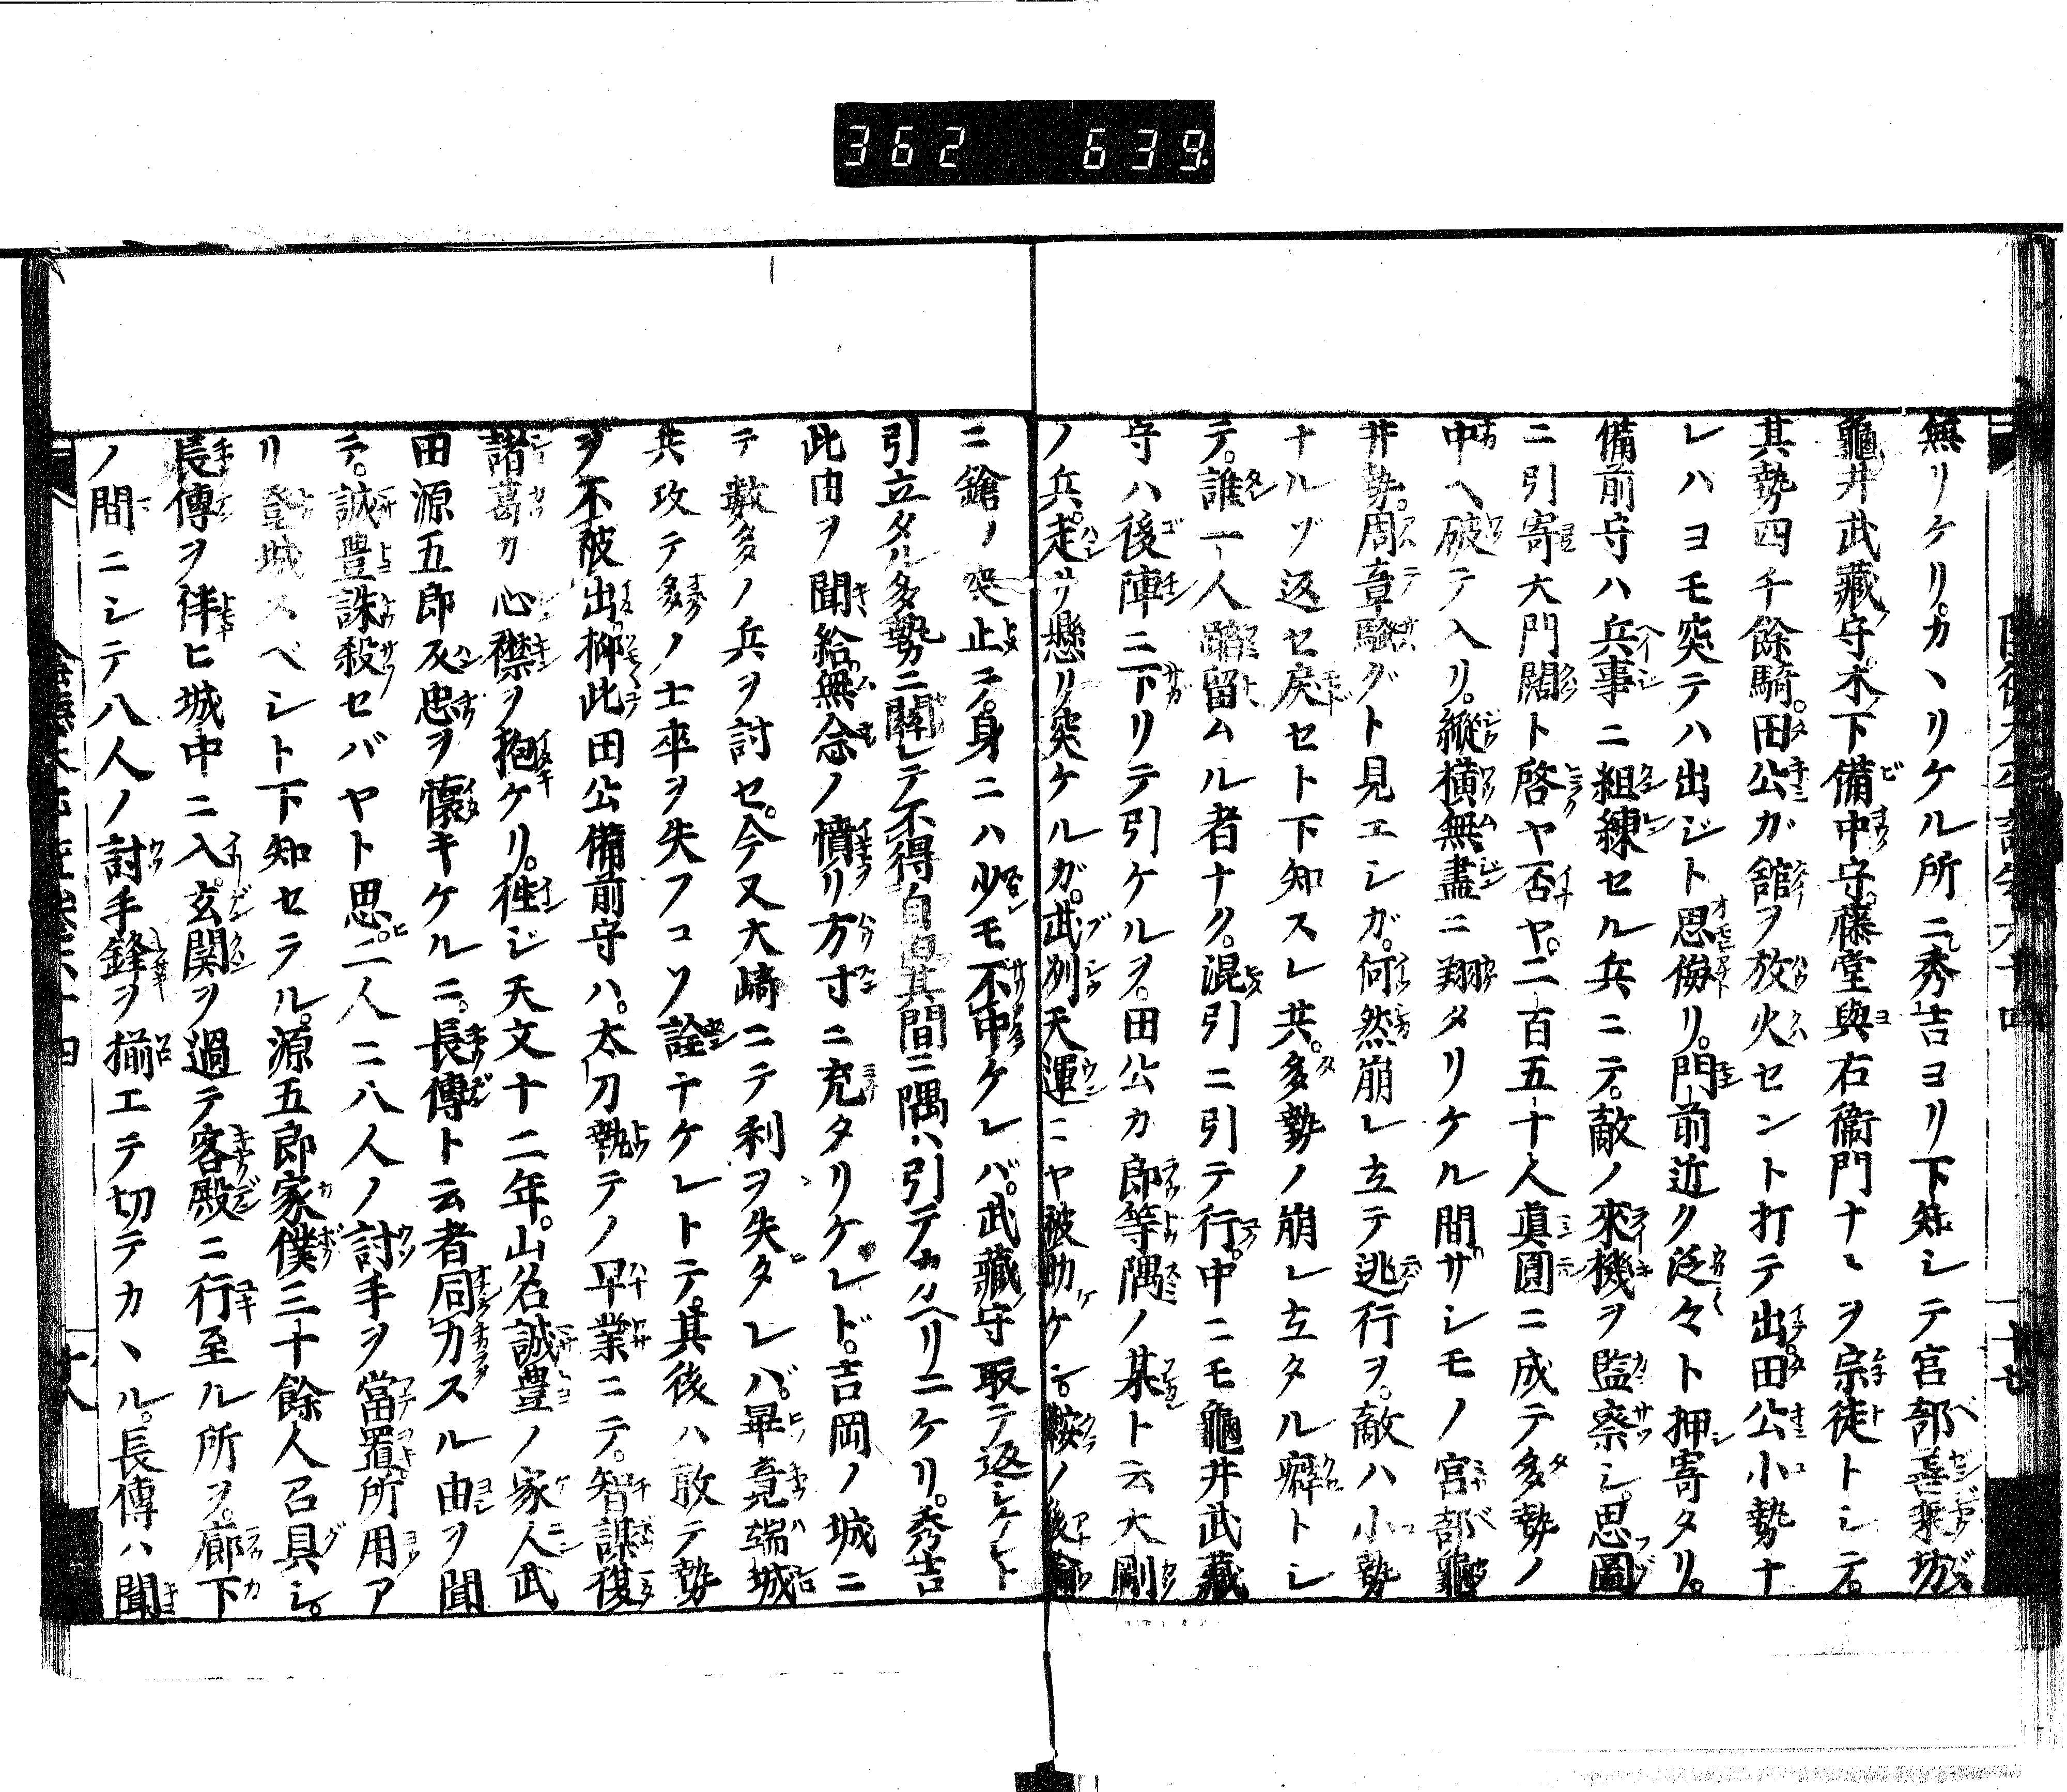 362 639
無リケリ。カヽリケル所ニ秀吉ヨリ下知シテ宮部善乗坊。
龜井武藏守。木下備中守。藤堂與右衞門ナトヲ宗徒トシテ。
其勢四千餘騎。田公ガ舘ヲ放火セント打テ出。田公小勢ナ
レハヨモ突テハ出ジト思侮リ。門前近ク泛々ト押寄タリ。
備前守ハ兵事ニ組練セル兵ニテ。敵ノ來機ヲ監察シ。思圖
ニ引寄大門闊ト啓ヤ否ヤ。二百五十人眞圓ニ成テ多勢ノ
中ヘ破テ入リ。縱橫無盡ニ翔タリケル間サシモノ宮部龜
井勢。周章騷グト見エシガ。何然崩レ立テ逃行ヲ。敵ハ小勢
ナルゾ返セ戻セト下知スレ共。多勢ノ崩レ立タル癖トシ
テ。誰一人蹈留ムル者ナク。混引ニ引テ行。中ニモ龜井武藏
守ハ後陣ニ下リテ引ケルヲ。田公カ郎等隅ノ某ト云大剛
ノ兵。走リ懸リ突ケルガ。武州天運ニヤ被助ケン。鞍ノ後輪
ニ鎗ノ突止テ。身ニハ少モ不中ケレバ。武藏守取テ返シケレト
引立タル多勢ニ關レテ不得自由其間ニ隅ハ引テカヘリニケリ。秀吉
此由ヲ聞給無念ノ憤リ方寸ニ充タリケレド。吉岡ノ城ニ
テ數多ノ兵ヲ討セ。今又大崎ニテ利ヲ失タレバ。畢竟端城
共攻テ多ノ士卒ヲ失フコソ詮ナケレトテ。其後ハ敢テ勢
ヲ不被出抑此田公備前守ハ。太刀執テノ早業ニテ。智謀復
諸葛カ心襟ヲ抱ケリ。往ジ天文十二年。山名誠豊ノ家人武
田源五郎反忠ヲ懷キケルニ。長傳ト云者同カスル由ヲ聞
テ。誠豊誅殺セバヤト思。二人ニ八人ノ討手ヲ當置所用ア
リ登城スベシト下知セラル。源五郎家僕三十餘人召具シ。
長傳ヲ伴ヒ城中ニ入。玄関ヲ過テ客殿ニ行至ル所ヲ。廊下
ノ間ニシテ八人ノ討手鋒ヲ揃エテ切テカヽル。長傳ハ聞